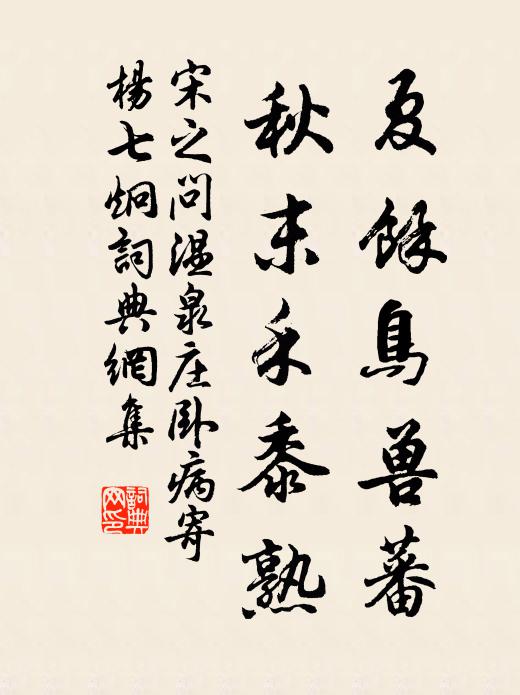 夏餘鳥獸蕃
秋末禾黍熟
宋之問溫泉庄臥病寄
楊七炯詞典網集
詞典網印